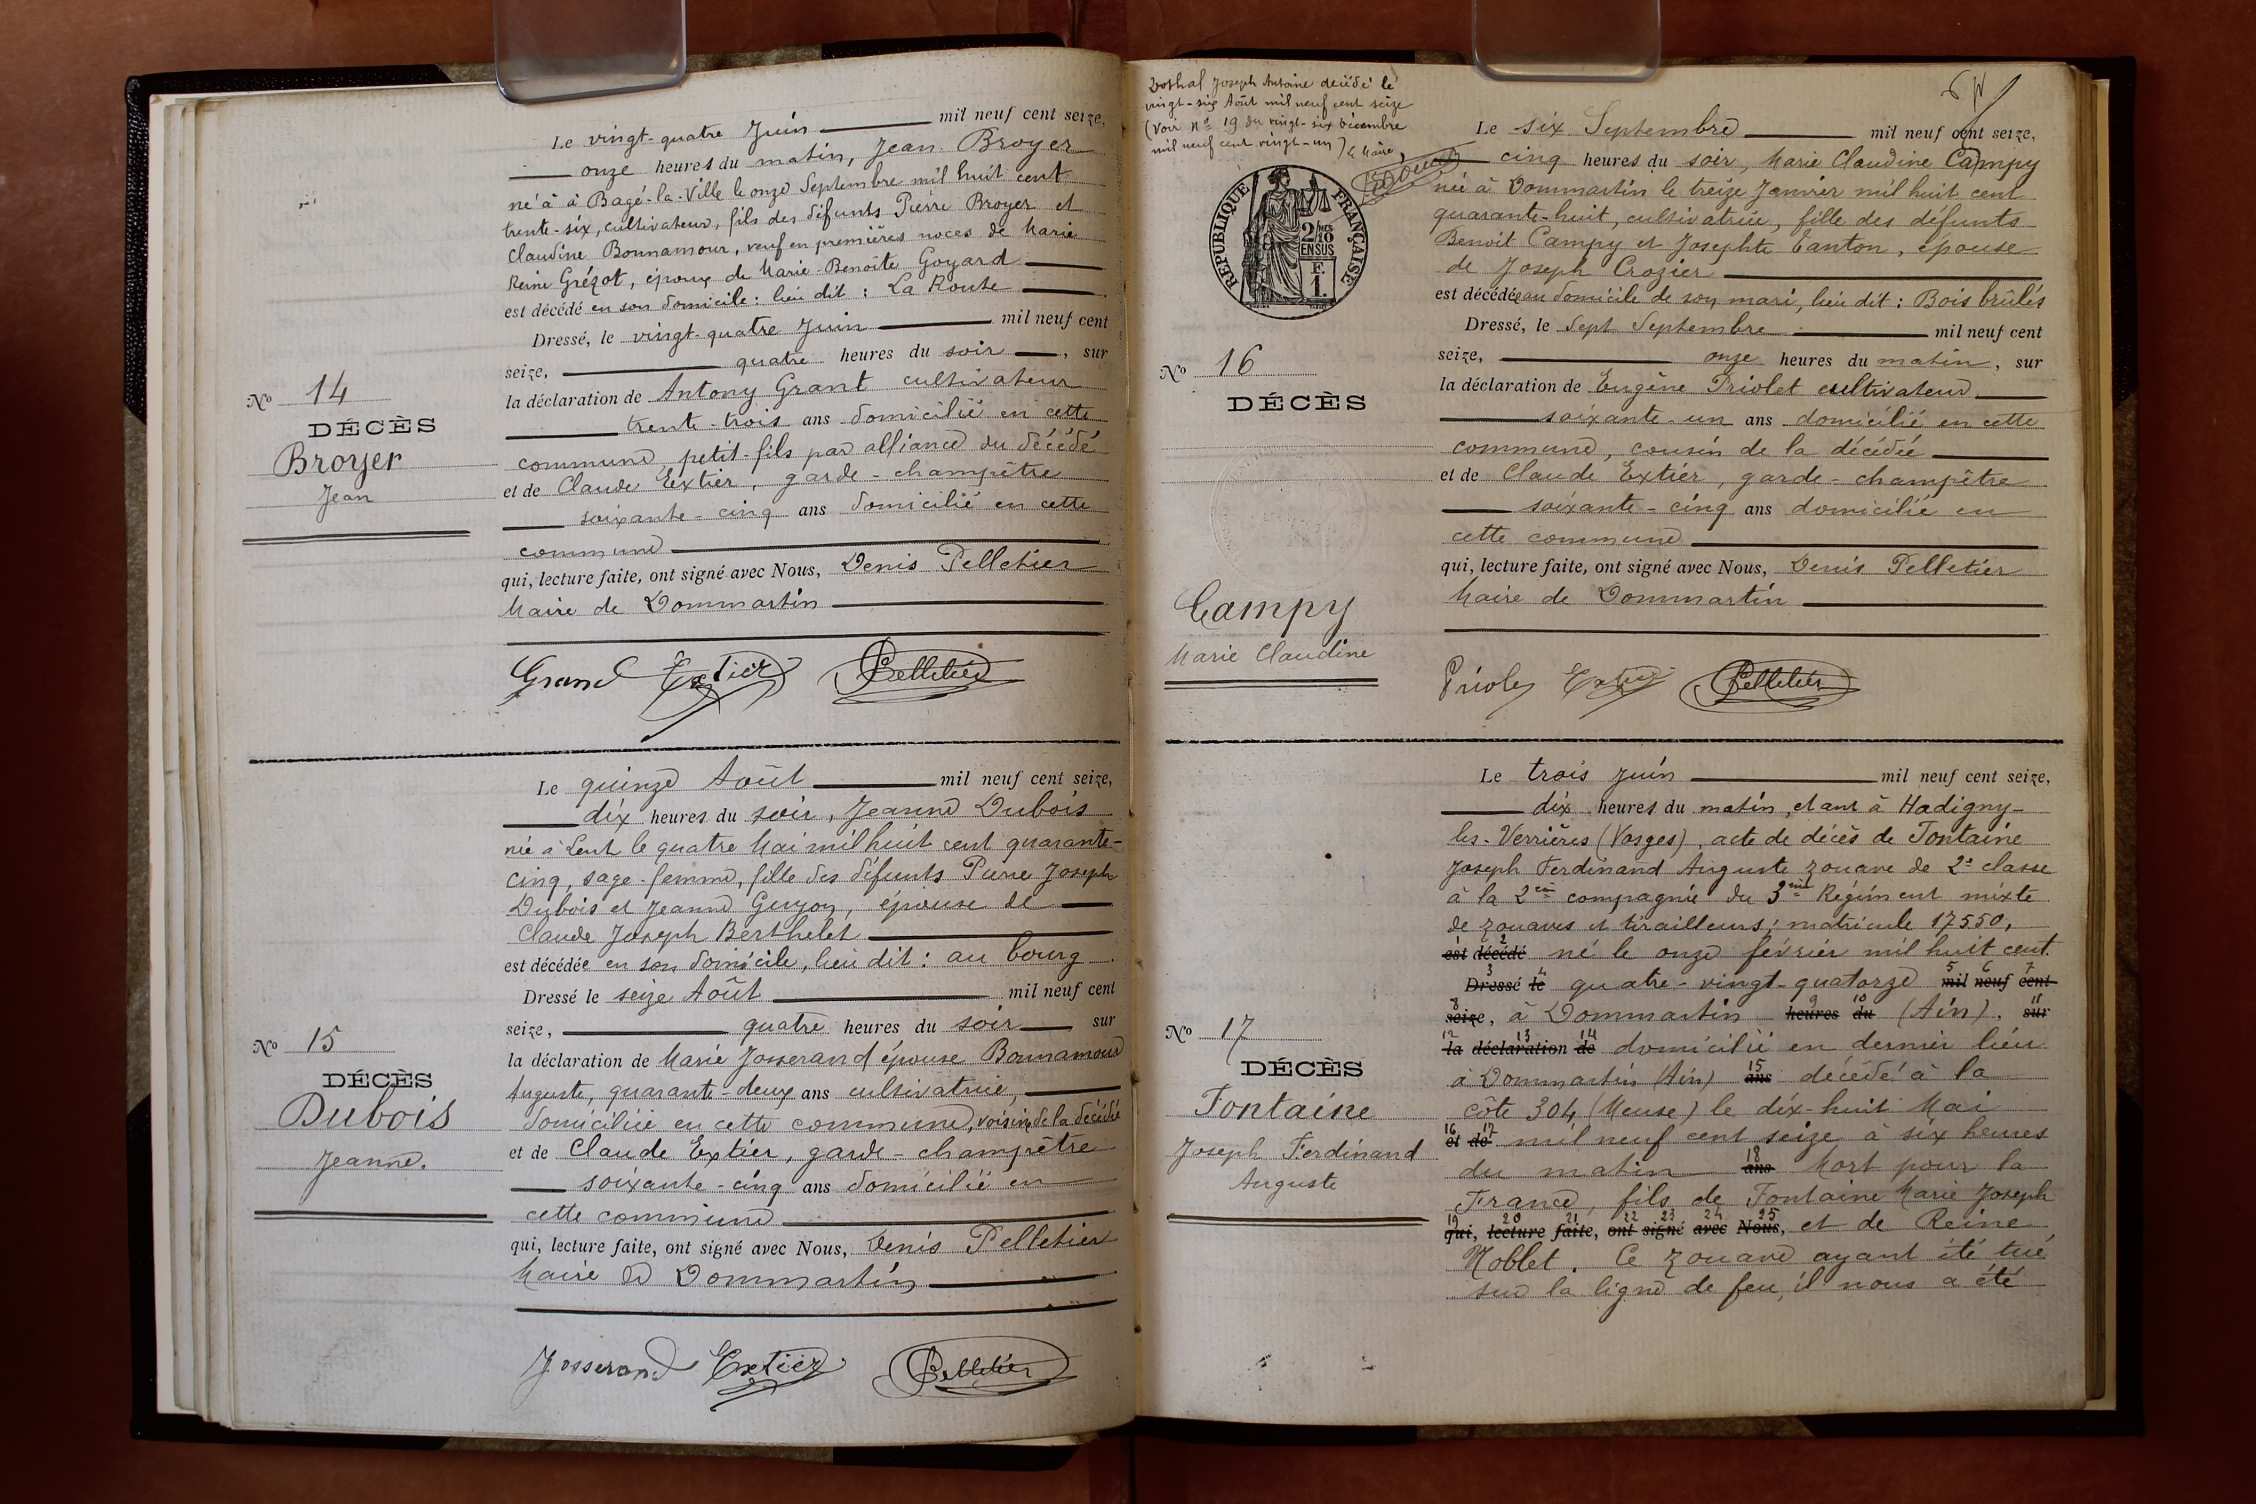 Le vingt-quatre Juin mil neuf cent seize,
onze heures du matin, Jean Broyer
né à à Bagé-la-Ville le onze Septembre mil huit cent
trente-six, cultivateur, fils des défunts Pierre Broyer et
Claudine Bonnamour, veuf en premières noces de Marie
Reine Grézot, époux de Marie-Benoîte Goyard
est décédé en son domicile : lieu dit : La Route
Dressé, le vingt-quatre Juin mil neuf cent
seize, quatre heures du soir, sur
la déclaration de Antony Grant cultivateur
trente-trois ans domicilié en cette
commune, petit-fils par alliance du décédé
et de Claude Extier, garde-champêtre
soixante-cinq ans domicilié en cette
commune
qui, lecture faite, ont signé avec Nous, Denis Pelletier
Maire de Dommartin
Grand Extier Pelletier
No 14
DÉCÈS
Broyer
Jean
Le quinze Août mil neuf cent seize,
dix heures du soir, Jeanne Dubois
née à Lent le quatre Mai mil huit cent quarante-
cinq, sage-femme, fille des défunts Pierre Joseph
Dubois et Jeanne Guyon, épouse de
Claude Joseph Berthelet
est décédée en son domicile, lieu dit : au bourg
Dressé le seize Août mil neuf cent
seize, quatre heures du soir sur
la déclaration de Marie Josserand épouse Bonnamour
Auguste, quarante-deux ans cultivatrice,
domiciliée en cette commune, voisine de la décédée
et de Claude Extier, garde-champêtre
soixante-cinq ans domicilié en
cette commune
qui, lecture faite, ont signé avec Nous, Denis Pelletier
Maire de Dommartin
Josserand Extier Pelletier
No 15
DÉCÈS
Dubois
Jeanne.
Joseph Antoine décédé le
vingt-six Août mil neuf cent seize
(Voir No 19 du vingt-six décembre
mil neuf cent vingt-un) Le Maire,
RÉPUBLIQUE FRANÇAISE
2/10
EN SUS
F.
1.
No 16
DÉCÈS
Campy
Marie Claudine
Le six Septembre mil neuf cent seize,
cinq heures du soir, Marie Claudine Campy
née à Dommartin le treize Janvier mil huit cent
quarante-huit, cultivatrice, fille des défunts
Benoit Campy et Josephte Canton, épouse
de Joseph Crozier
est décédée au domicile de son mari, lieu dit : Bois brûlés
Dressé, le Sept Septembre mil neuf cent
seize, onze heures du matin, sur
la déclaration de Eugène Priolet cultivateur
soixante-un ans domicilié en cette
commune, cousin de la décédée
et de Claude Extier, garde-champêtre
soixante-cinq ans domicilié en
cette commune
qui, lecture faite, ont signé avec Nous, Denis Pelletier
Maire de Dommartin
Priolet Extier Pelletier
No 17
DÉCÈS
Fontaine
Joseph Ferdinand
Auguste
Le trois Juin mil neuf cent seize,
dix heures du matin, étant à Hadigny-
les-Verrières (Vosges), acte de décès de Fontaine
Joseph Ferdinand Auguste zouave de 2e classe
à la 2em compagnie du 3em Régiment mixte
de zouaves et tirailleurs; matricule 17550,
est décédé né le onze février mil huit cent
Dressé le quatre-vingt-quatorze mil neuf cent
seize, à Dommartin heures du (Ain). sur
la déclaration de domicilié en dernier lieu
à Dommartin (Ain) ans décédé à la
côte 304 (Meuse) le dix-huit Mai
et de mil neuf cent seize à six heures
du matin ans Mort pour la
France, fils de Fontaine Marie Joseph
qui, lecture faite, ont signé avec Nous, et de Reine
Noblet. Ce zouave ayant été tué
sur la ligne de feu, il nous a été